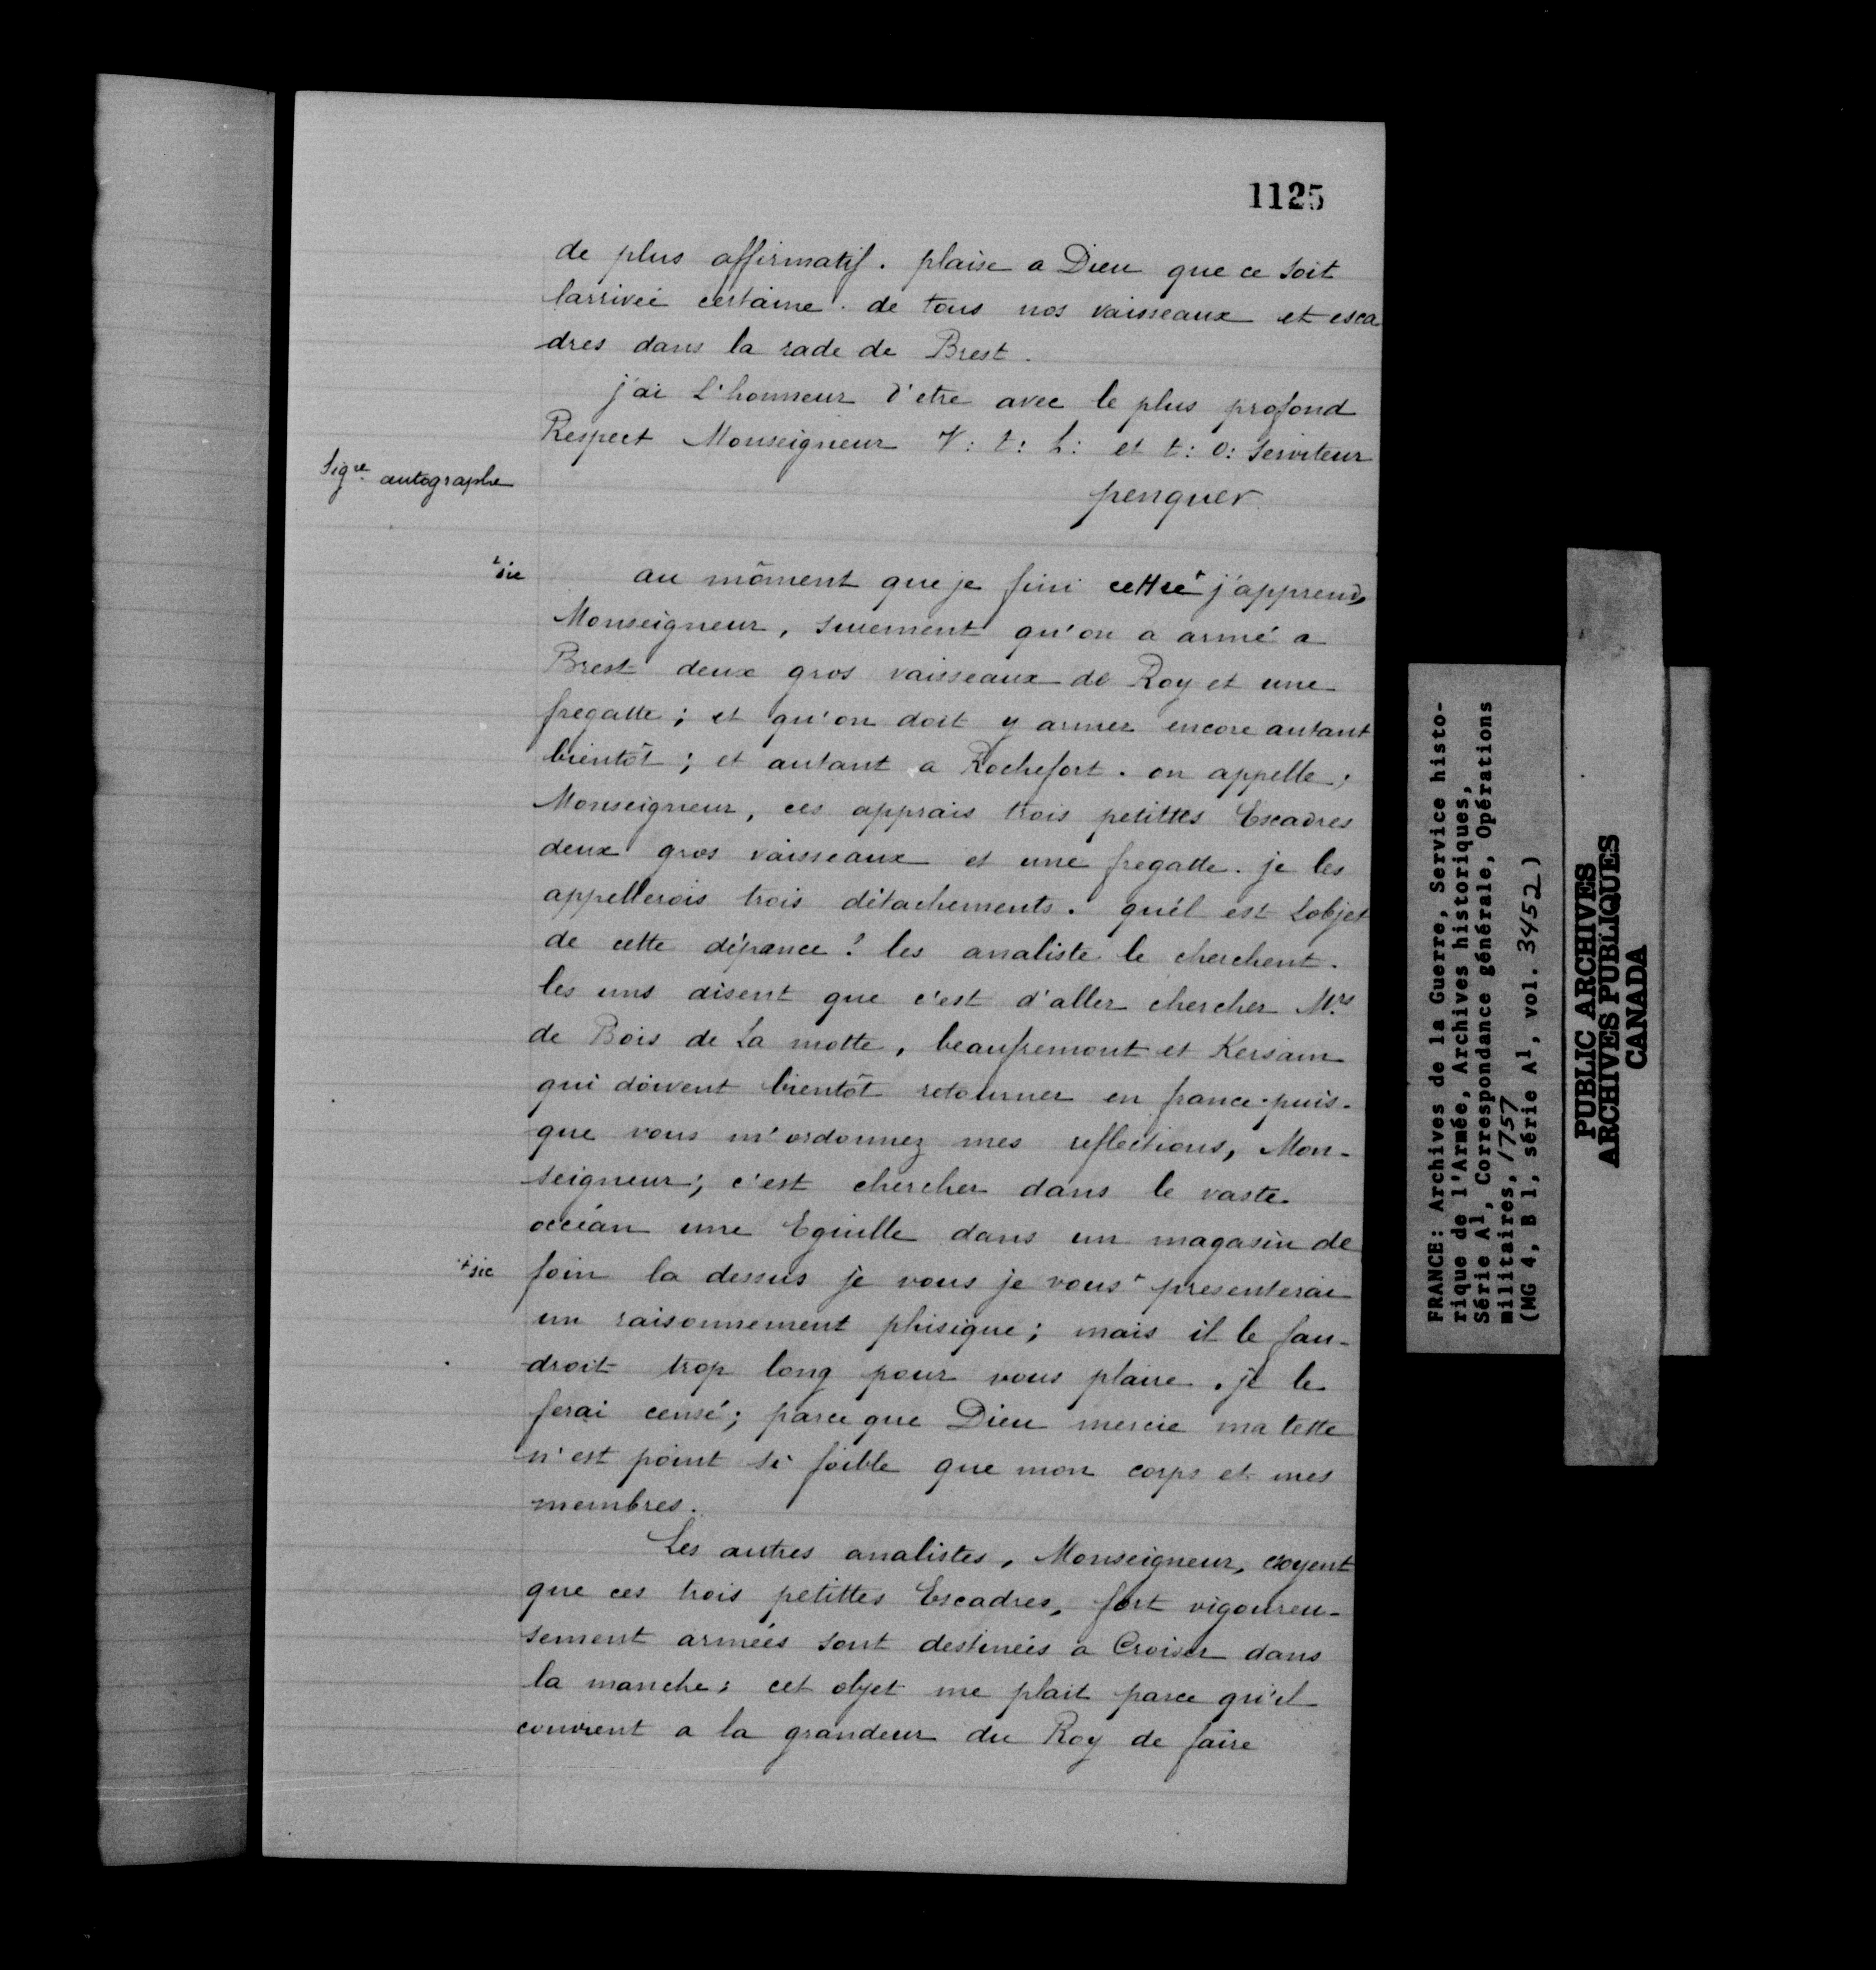 1125
de plus affirmatif. plaise a Dieu que ce soit
larrivée certaine. de tous nos vaisseaux et esca
dres dans la rade de Brest.
j'ai l'honneur d'etre avec le plus profond
Respect Monseigneur V: t: h: et t: o: serviteur
Sigre autographe
penquer
+sic
au môment que je fini cettre+ j'apprends
Monseigneur, surement qu'on a armé a
Brest deux gros vaisseaux de Roy et une
fregatte; et qu'on doit y armer encore autant
bientôt; et autant a Rochefort. on appelle,
Monseigneur, ces apprais trois petittes Escadres
deux gros vaisseaux et une fregatte. je les
appellerois trois détachements. quél est Lobjet
de cette dépance? les analiste le cherchent.
les uns disent que c'est d'aller chercher Mrs
de Bois de La motte, beaufremont et Kersain
qui doivent bientôt retourner en france. puis-
que vous m'ordonnez mes reflections, Mon-
seigneur; c'est chercher dans le vaste
occéan une Eguille dans un magasin de
+sic
foin la dessus je vous je vous+ presenterai
un raisonnement phisique; mais il le fau-
droit trop long pour vous plaire. je le
ferai censé; parce que Dieu mercie ma tette
n'est point si foible que mon corps et mes
membres.
Les autres analistes, Monseigneur, croyent
que ces trois petittes Escadres, fort vigoureu-
sement armées sont destinées a Croiser dans
la manche; cet objet me plait parce qu'il
convient a la grandeur du Roy de faire
FRANCE: Archives de la Guerre, Service histo-
rique de l'Armée, Archives historiques,
Série A1, Correspondance générale, Opérations
militaires, 1757
(MG 4, B 1, série A1, vol. 3452)
PUBLIC ARCHIVES
ARCHIVES PUBLIQUES
CANADA